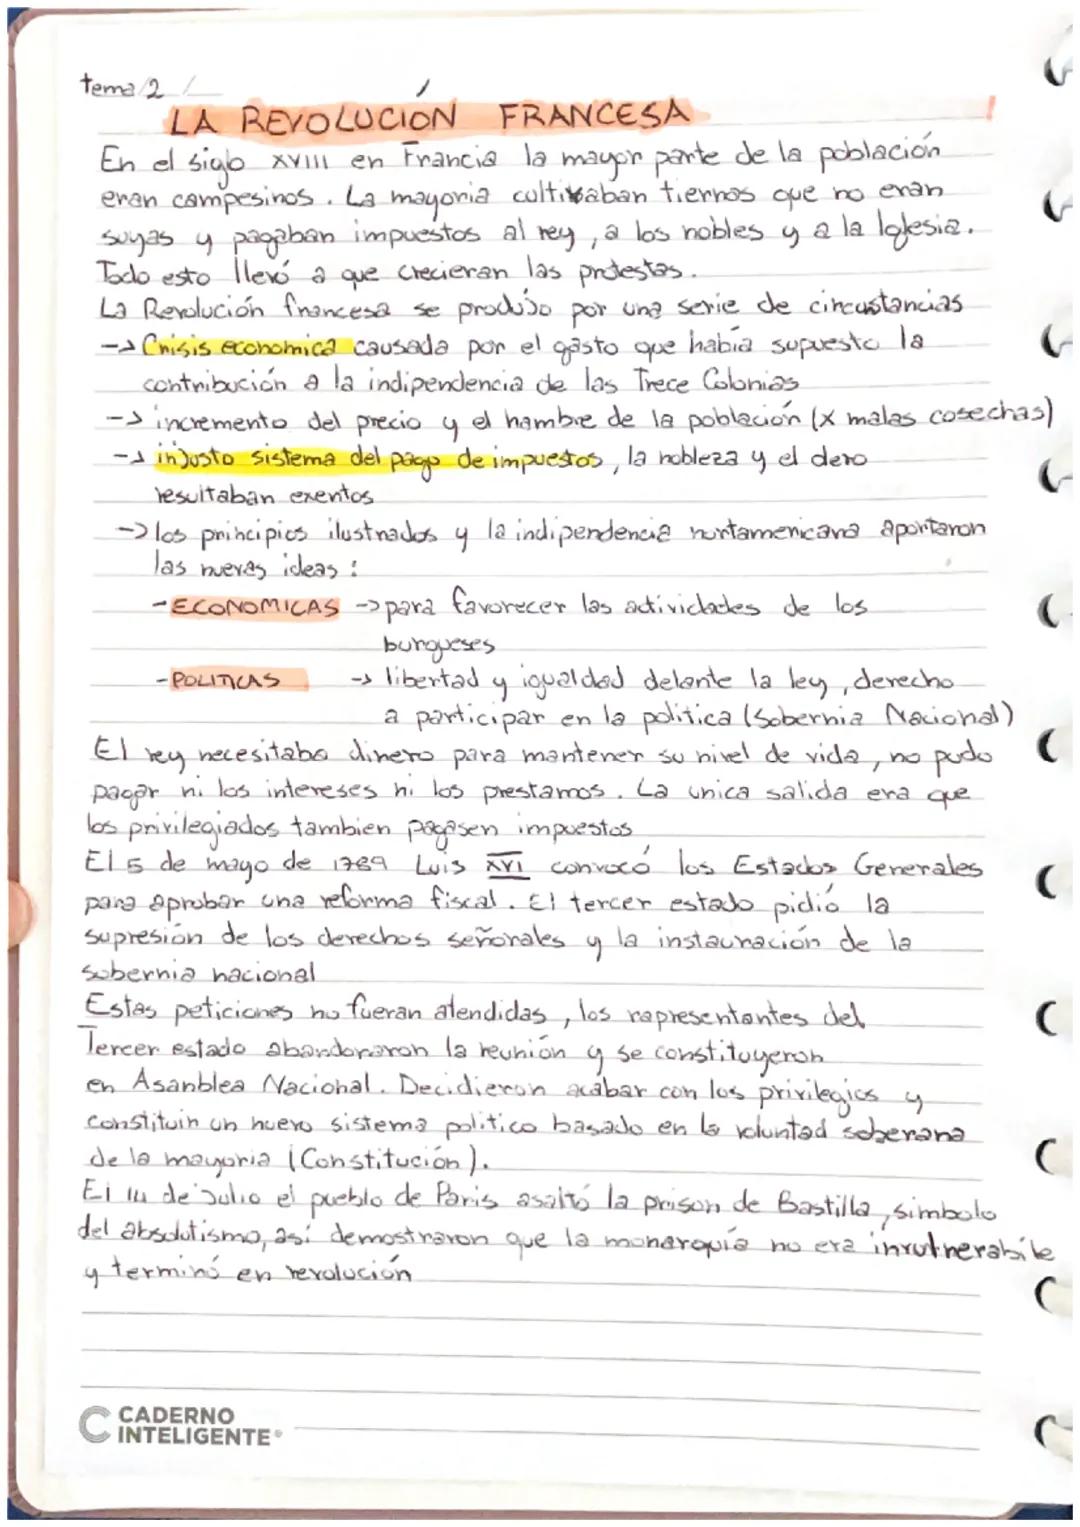 tema 2
LA REVOLUCIÓN FRANCESA
En el siglo XVIII en Francia la mayor parte de la población
eran campesinos. La mayoria cultivaban tierras que no eran
suyas y pagaban impuestos al rey, a los nobles y a la Iglesia.
Todo esto llevó a que crecieran las protestas.
La Revolución francesa se produjo por una serie de circustancias
-> Crisis economica causada por el gasto que había supuesto la
contribución a la indipendencia de las Trece Colonias
-> incremento del precio y el hambre de la población (x malas cosechas)
-> injusto sistema del pago de impuestos, la nobleza y el clero
resultaban exentos
-> los principios ilustrados y la indipendencia nortamericana aportaron
las nuevas ideas :
- ECONOMICAS -> para favorecer las actividades de los
burgueses
- POLITICAS -> libertad y igualdad delante la ley, derecho
a participar en la politica (Sobernia Nacional)
El rey necesitaba dinero para mantener su nivel de vida, no pudo
pagar ni los intereses ni los prestamos. La unica salida era que
los privilegiados tambien pagasen impuestos
El 5 de mayo de 1789 Luis XVI convocó los Estados Generales
para aprobar una reforma fiscal. El tercer estado pidió la
supresión de los derechos señorales y la instauración de la
sobernia nacional
Estas peticiones no fueran atendidas, los rapresentantes del
Tercer estado abandonaron la reunión y se constituyeron
en Asanblea Nacional. Decidieron acabar con los privilegios y
constituir un nuevo sistema politico basado en la voluntad soberana
de la mayoria (Constitución).
El 14 de Julio el pueblo de Paris asaltó la prison de Bastilla, simbolo
del absolutismo, así demostraron que la monarquía no era invulnerabile
y terminó en revolución
CADERNO
INTELIGENTE®